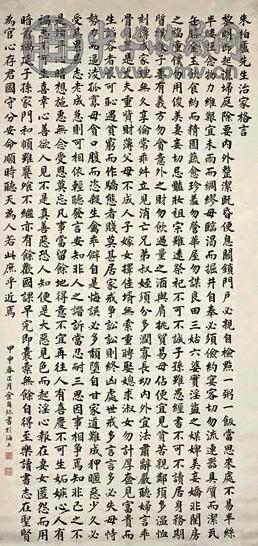 朱柏廬先生治家格言
黎明即起灑掃庭除要內外整潔既昏便息關鎖門戶必親自檢點一粥一飯當思來處不易半絲
半縷恒念物力維艱宜未雨而綢繆毋臨渴而掘井自奉必須儉約宴客切勿流連器具質而潔瓦
缶勝金玉飲食約而精園蔬愈珍饈勿營華屋勿謀良田三姑六婆實淫盜之媒婢美妾嬌非閨房
之福童僕勿用俊美妻妾切忌豔妝祖宗雖遠祭祀不可不誠子孫雖愚經書不可不讀居身務期
質樸教子要有義方勿貪意外之財勿飲過量之酒與肩挑貿易毋佔便宜見貧苦親鄰須多溫恤
刻薄成家理無久享倫常乖舛立見消亡兄弟叔姪須分多潤寡長幼內外宜法肅辭嚴聽婦言乖
骨肉豈是丈夫重資財薄父母不成人子嫁女擇佳壻毋索重聘娶媳求淑女勿計厚奩見富貴而
生諂容者最可恥遇貧窮而作驕態者賤莫甚居家戒爭訟訟則終凶處世戒多言言多必失毋恃
勢力而凌逼孤寡毋貪口腹而恣殺生禽乖僻自是悔誤必多頹惰自甘家道難成狎暱惡少久必
受其累屈志老成急則可相依輕聽發言安知非人之譖訴當忍耐三思因事相爭焉知非己之不
是須平心暗想施惠無念受恩莫忘凡事當留餘地得意不宜再往人有喜慶不可生妒嫉心人有
禍患不可生喜幸心善欲人見不是真善惡恐人知便是大惡見色而起淫心報在妻女匿怨而用
暗箭禍延子孫家門和順雖饔飧不繼亦有餘歡國課早完即囊橐無餘自得至樂讀書志在聖賢
為官心存君國守分安命順時聽天為人若此庶乎近焉
甲申春正月金爾珍書於海上